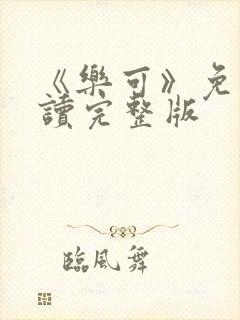 《樂可》免
讀完整版
臨風舞